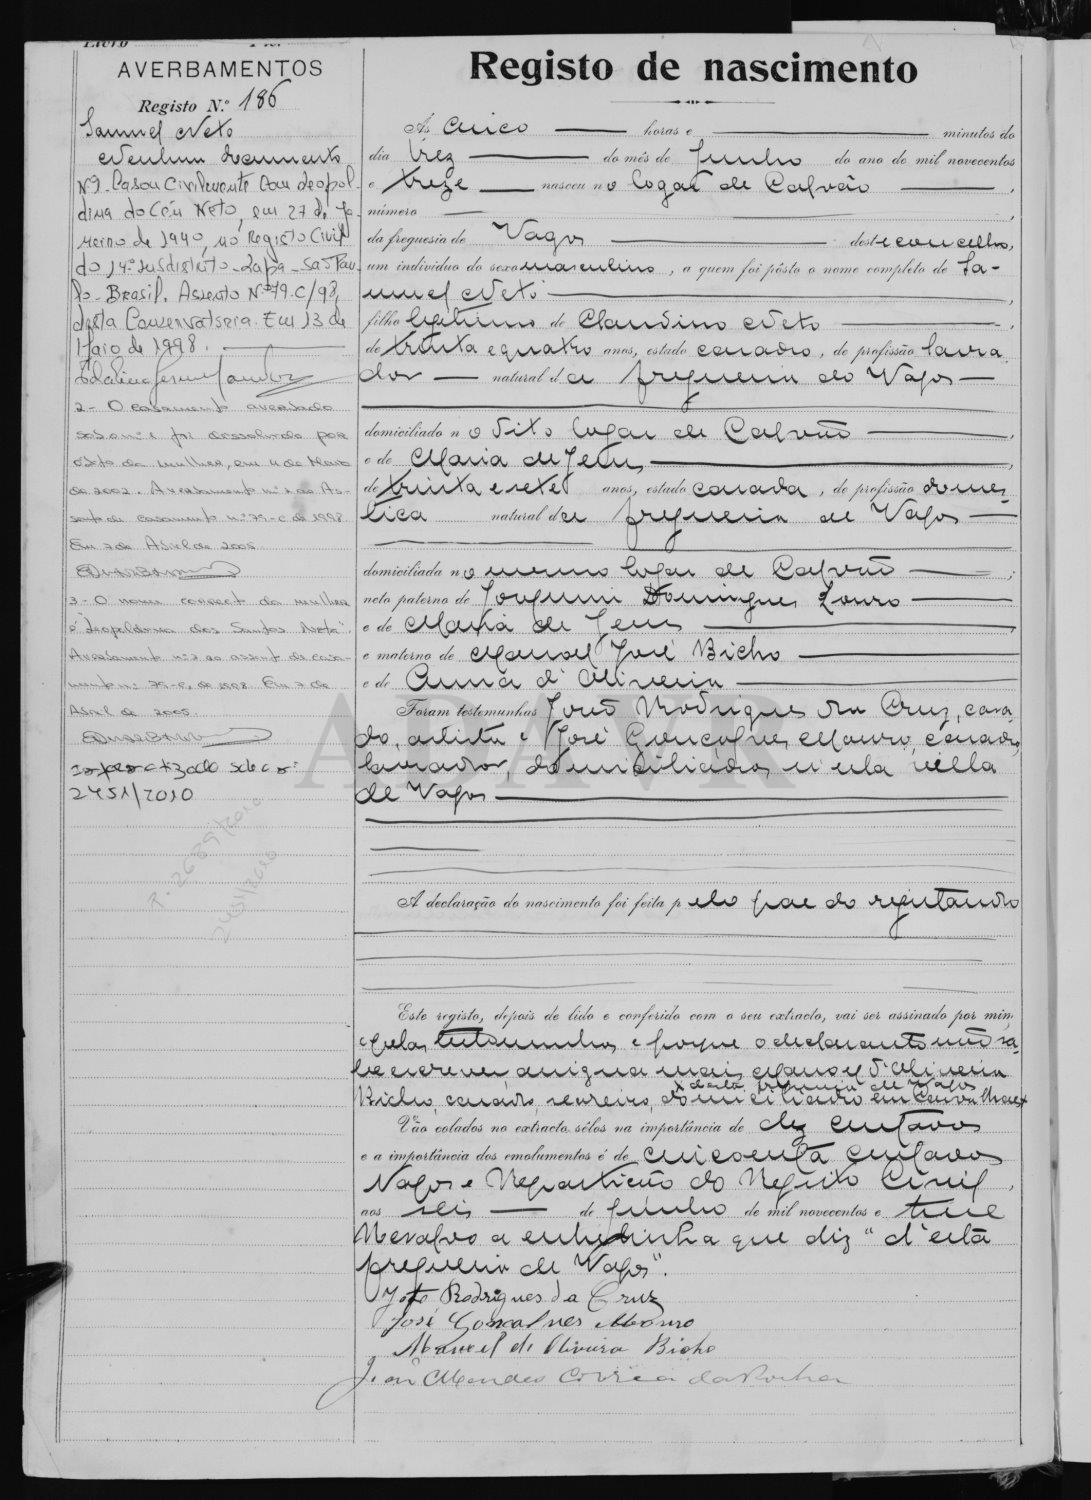 AVERBAMENTOS
Registo N.º 186
Samuel Neto
Nenhum documento
Nº1-Casou Civilmente com Leopol-
dina do Céu Neto, em 27 de Ja-
neiro de 1940, no Registo Civil
do 14º subdistrito-Lapa-São Pau-
lo-Brasil. Assento Nº79-C/98,
desta Conservatória. Em 13 de
Maio de 1998.
2- O casamento averbado
sob o nº 1 foi dissolvido por
óbito da mulher, em 11 de
de 2002. Averbamento nº 1 ao As-
sento de casamento nº 79-C de 1998
Em 7 de Abril de 2005
3- O nome correcto da mulher
é "Leopoldina dos Santos Neta".
Averbamento nº 2 ao assento de casa-
mento nº 79-C, de 1998. Em 7 de
Abril de 2005.
2451/2010
P. 2689/2010
2451/2010
Registo de nascimento
Às cinco horas e minutos do
dia trez do mês de Junho do ano de mil novecentos
e treze nasceu no logar de Calvão,
número
da freguesia de Vagos deste concelho,
um indivíduo do sexo masculino, a quem foi pôsto o nome completo de Sa-
muel Neto
filho legitimo de Claudino Neto
de trinta e quatro anos, estado casado, de profissão lavra
dor natural da freguesia de Vagos
domiciliado no dito logar de Calvão
e de Maria de Jesus
de trinta e sete anos, estado casada, de profissão domes-
tica natural da freguesia de Vagos
domiciliada no mesmo logar de Calvão;
neto paterno de Joaquim Domingues Louro
e de Maria de Jesus
e materno de Manoel José Bicho
e de Anna d'Oliveira
Foram testemunhas João Rodrigues da Cruz, casa-
do, artista e José Gonçalves Mouro, casado,
lavrador, domiciliados n'esta villa
de Vagos
A declaração do nascimento foi feita pelo pae do registando
Este registo, depois de lido e conferido com o seu extracto, vai ser assinado por mim,
e pelas testemunhas e porque o declarante não sa-
be escrever assigna mais Manoel d'Oliveira
desta freguesia de Vagos
Bicho, casado, domiciliado em
Vão colados no extracto sêlos na importância de dez centavos
e a importância dos emolumentos é de cincoenta centavos
Vagos e Repartição do Registo Civil,
aos seis de Junho de mil novecentos e treze
Resalvo a entrelinha que diz "d'esta
freguesia de Vagos".
João Rodrigues da Cruz
José Gonçalves Mouro
Manoel de Oliveira Bicho
João Mendes Correia da Rocha
ADAVR